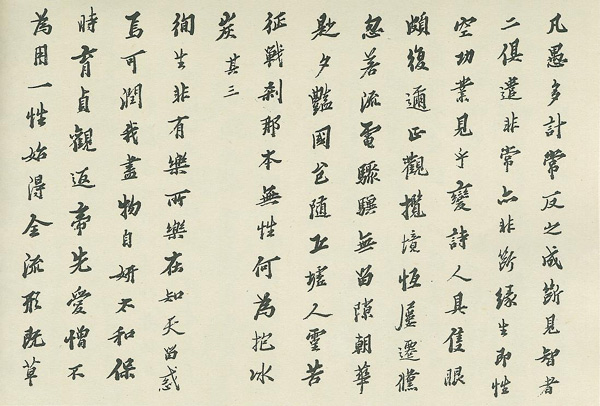 凡愚多計常反之成斷見智者
二俱遣非常亦非斷緣生即性
空功業見乎變詩人具隻眼
頗復邇正觀攬境恆屢遷儵
忽若流電驟驥無留隙朝華
尟夕豔國色隨丘墟人靈苦
征戰剎那本無性何為抱冰
炭 其三
徇生非有樂所樂在知天留惑
焉可潤我盡物自妍太和保
時育貞觀返帝先愛憎不
為用一性始得全流形既草